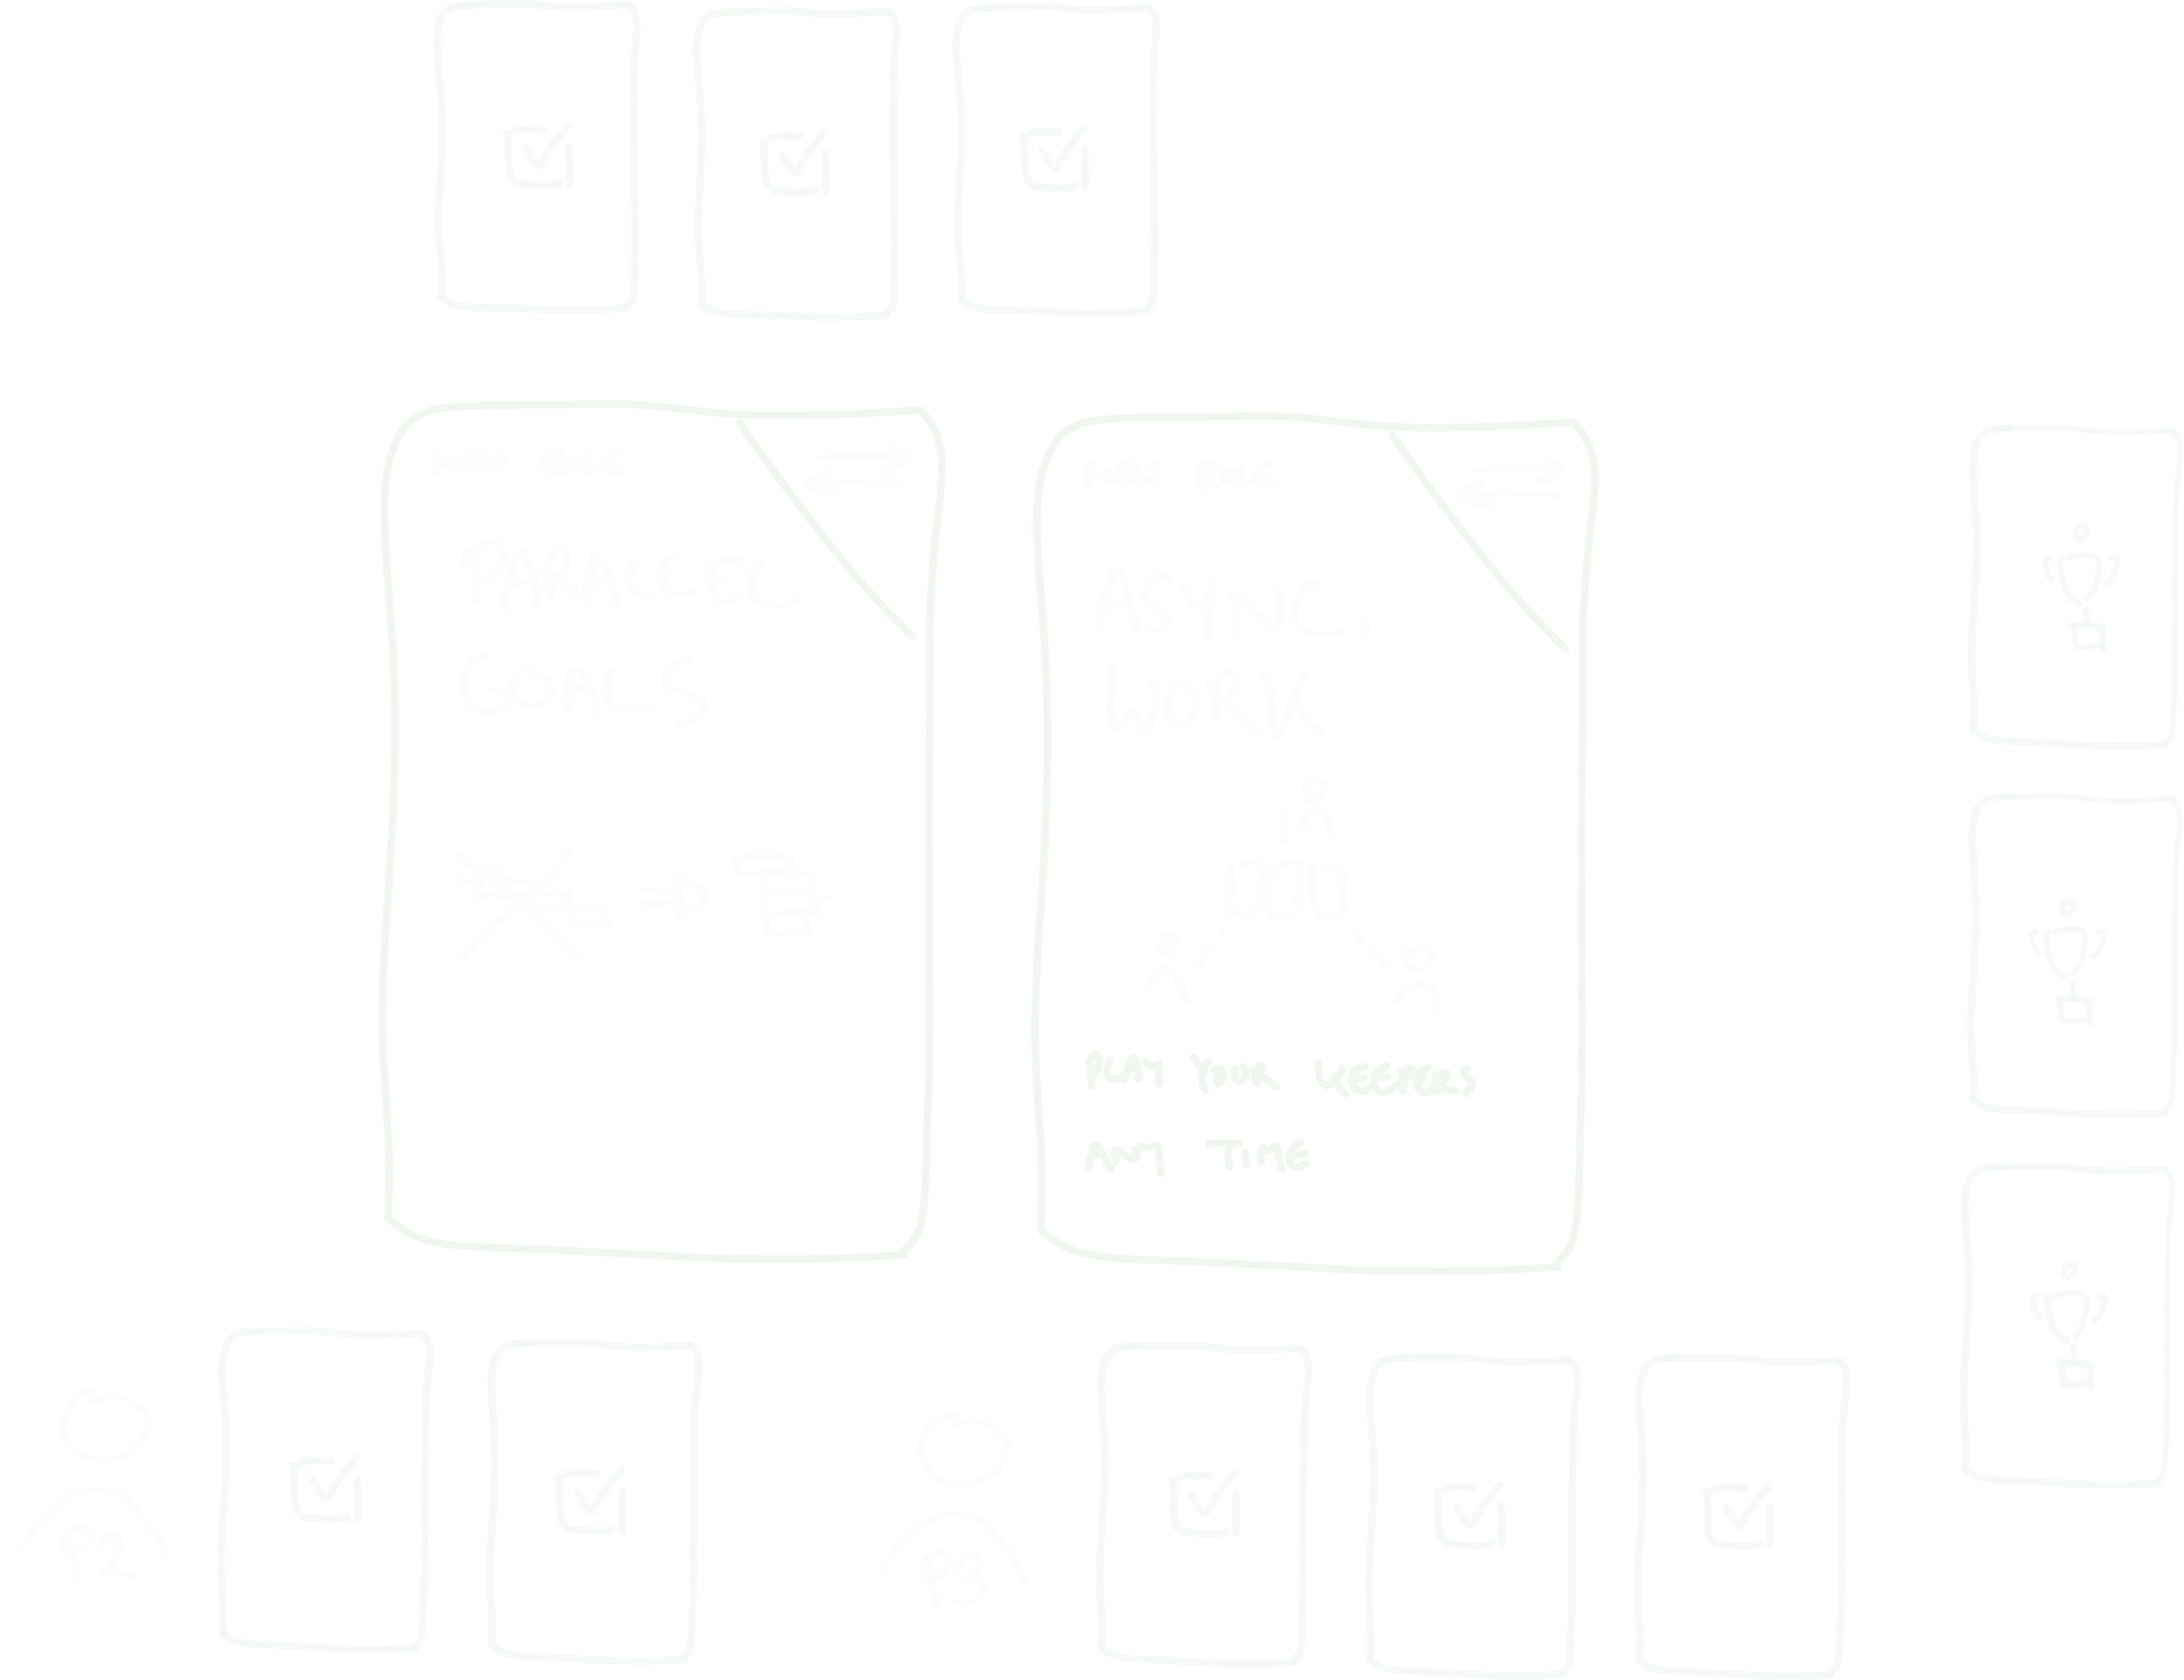 NEW RULE
PARALLEL
GOALS
NEW RULE
ASYNC.
WORK
PLAY YOUR WEEKERS
ANY TIME
P2
P3